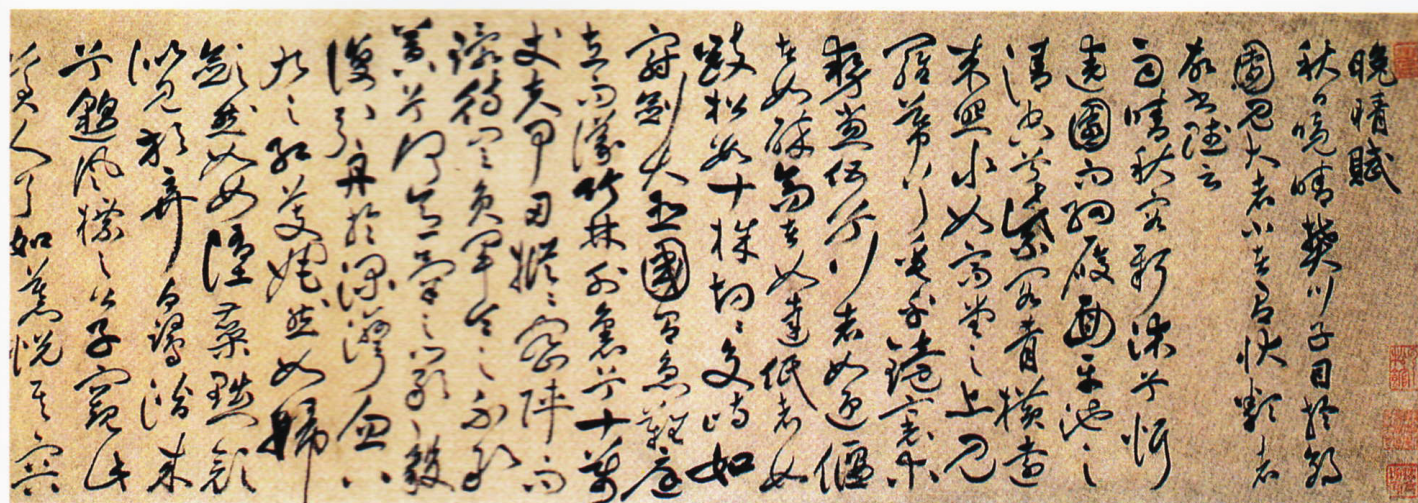 晚晴賦
秋日晚晴樊川子目於郊
園見大者小者有狀類者
故書賦云
雨晴秋容新沐兮忻
遶園而細履面平池之
清空兮紫閣青橫遠
來照水如高堂之上見
羅幕兮垂乎鏡裏木
勢黨伍兮行者如迎偃
者如醉高者如達低者如
跂松數十株切切交峙如
冠劍大臣國有急難庭
立而議竹林外裹兮十萬
丈夫甲刃摐摐密陣而
環侍豈負軍令之不敢
囂兮何意氣之嚴毅
復引舟於深灣忽八
九之紅芰姹然如婦
斂然如女墮蘂黦顏
似見放棄白鷺潛來
兮邈風標之公子窺此
美人兮如慕悅其容